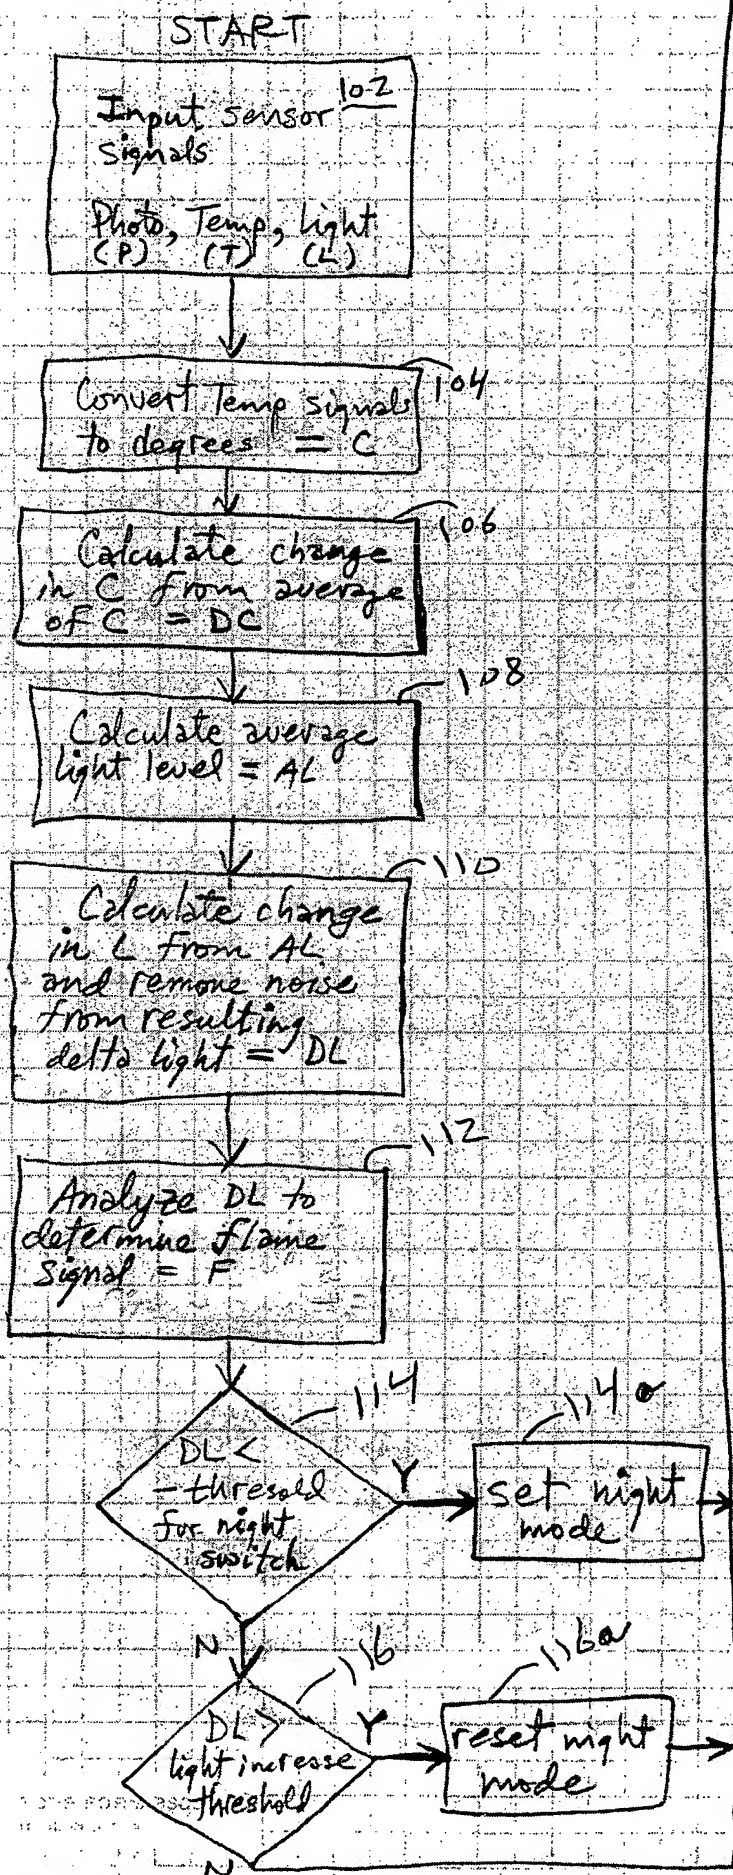 START
102
Input sensor
signals
Photo, Temp, Light
(P) (T) (L)
104
Convert Temp signals
to degrees = C
106
Calculate change
in C from average
of C = DC
108
Calculate average
light level = AL
110
Calculate change
in L from AL
and remove noise
from resulting
delta light = DL
112
Analyze DL to
determine flame
signal = F
114
DL <
- thresold
for night
switch
Y
114a
set night
mode
N
116
DL >
light increase
threshold
Y
116a
reset night
mode
N